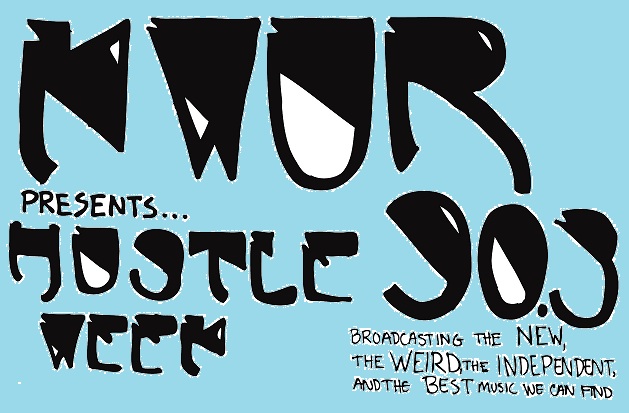 KWUR
PRESENTS...
HUSTLE
WEEK
90.3
BROADCASTING THE NEW,
THE WEIRD, THE INDEPENDENT,
AND THE BEST MUSIC WE CAN FIND